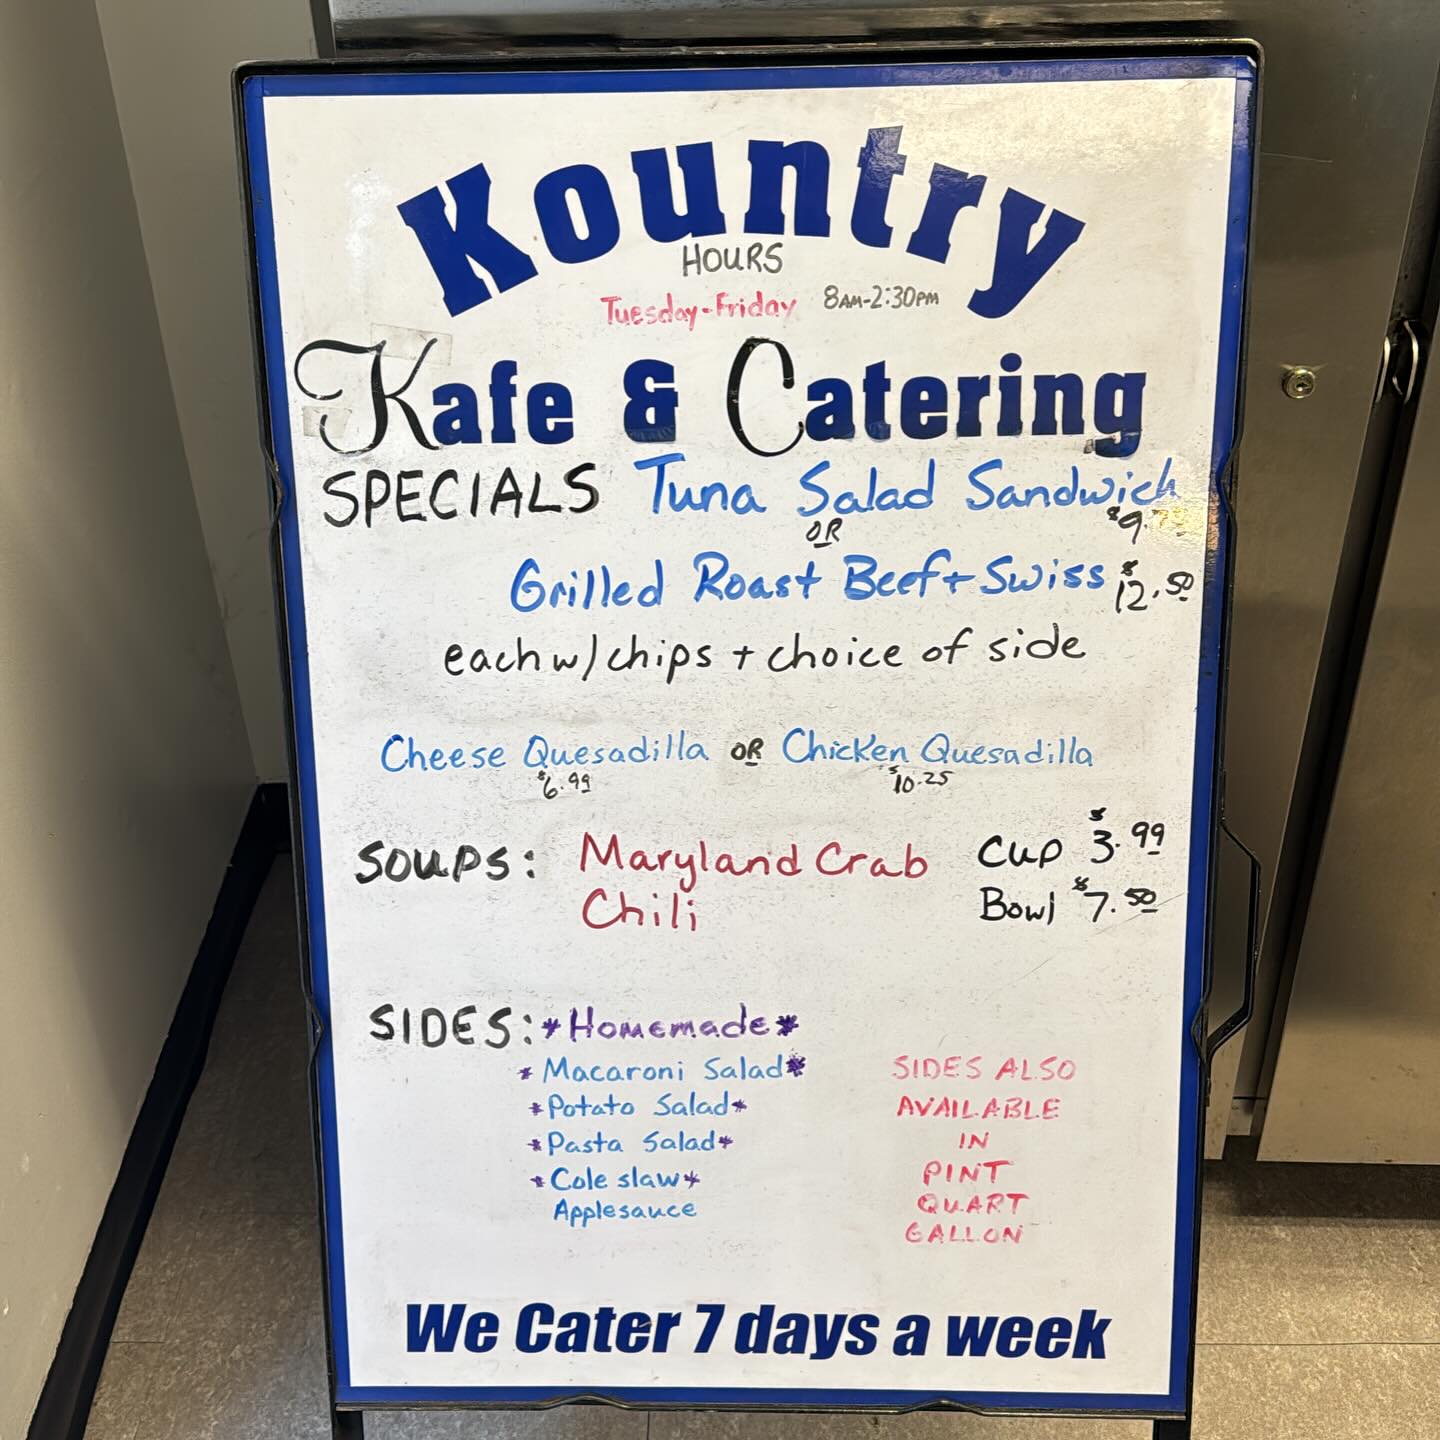 Kountry
HOURS
Tuesday-Friday 8AM-2:30PM
Kafe & Catering
SPECIALS Tuna Salad Sandwich
OR
Grilled Roast Beef + Swiss $12.50
each w/ chips + choice of side
Cheese Quesadilla OR Chicken Quesadilla
$6.99 $10.25
SOUPS: Maryland Crab Cup $3.99
Chili Bowl $7.50
SIDES: *Homemade*
*Macaroni Salad* SIDES ALSO
*Potato Salad* AVAILABLE
*Pasta Salad* IN
*Cole slaw* PINT
Applesauce QUART
GALLON
We Cater 7 days a week